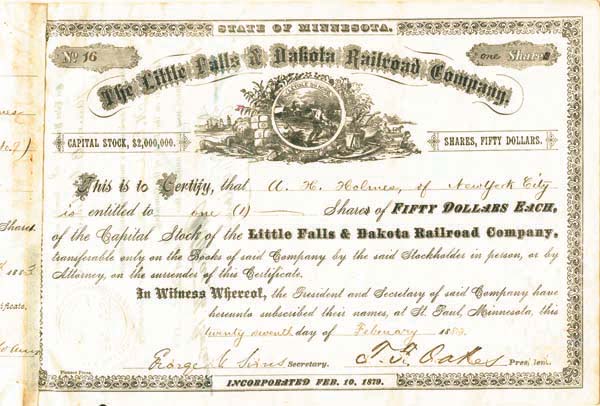 STATE OF MINNESOTA.
No 16
one Share
The Little Falls & Dakota Railroad Company.
CAPITAL STOCK, $2,000,000.
SHARES, FIFTY DOLLARS.
This is to Certify, that A. H. Holmes, of New York City
is entitled to one (1) Shares of FIFTY DOLLARS EACH,
of the Capital Stock of the Little Falls & Dakota Railroad Company,
transferable only on the Books of said Company by the said Stockholder in person, or by
Attorney, on the surrender of this Certificate.
In Witness Whereof, the President and Secretary of said Company have
hereunto subscribed their names, at St. Paul, Minnesota, this
twenty seventh day of February 1883.
George Secretary. T. F. Oakes President.
Pioneer Press.
INCORPORATED FEB. 10, 1879.